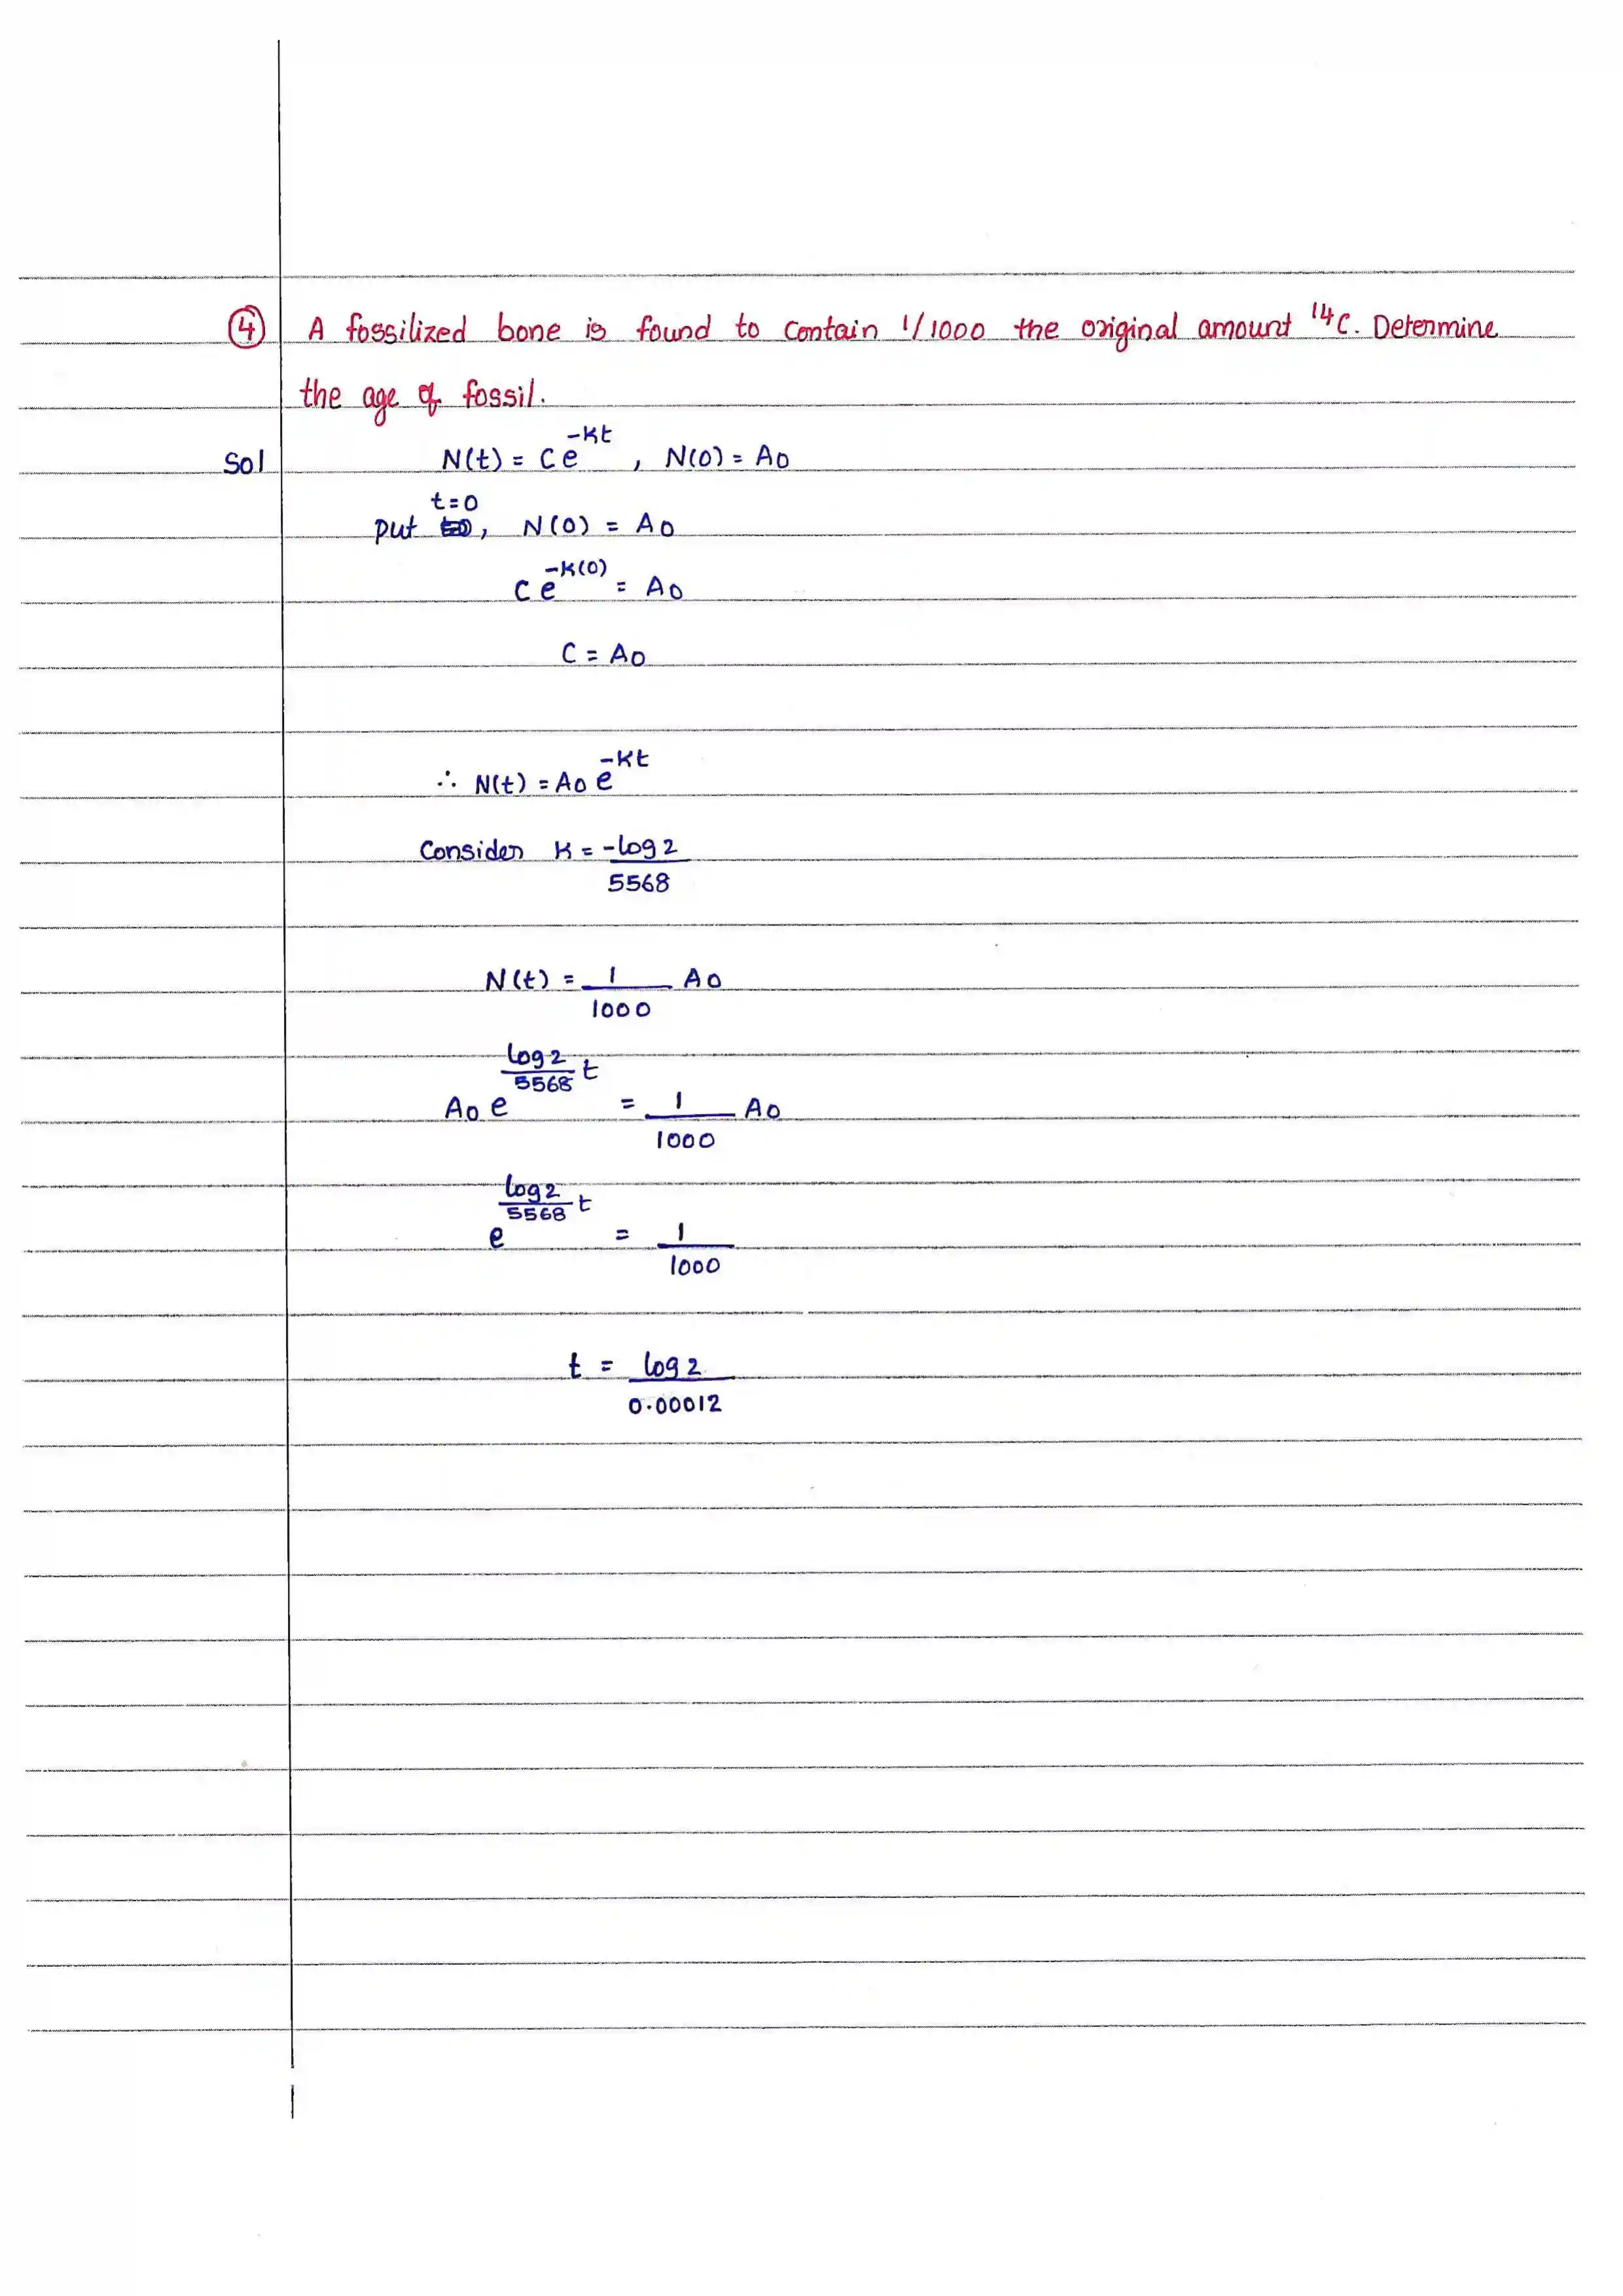 ④ A fossilized bone is found to contain 1/1000 the original amount ¹⁴C. Determine
the age of fossil.
Sol N(t) = Ce^{-Kt}, N(0) = A0
t=0
put , N(0) = A0
Ce^{-K(0)} = A0
C = A0
∴ N(t) = A0 e^{-Kt}
Consider K = -log2/5568
N(t) = 1/1000 A0
A0 e^{log2/5568 t} = 1/1000 A0
e^{log2/5568 t} = 1/1000
t = log2/0.00012